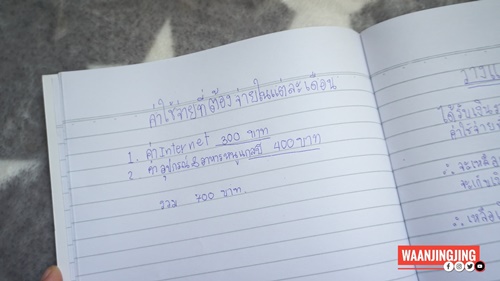 ค่าใช้จ่ายที่ต้องจ่ายในแต่ละเดือน
1. ค่า Internet 300 บาท
2 ค่าอุปกรณ์ & อาหารหนูแกสบี้ 400 บาท
รวม 700 บาท
ได้รับเงิน
ค่าใช้จ่าย
∴ จะเหลือ
∴ เหลือ
WAANJINGJING